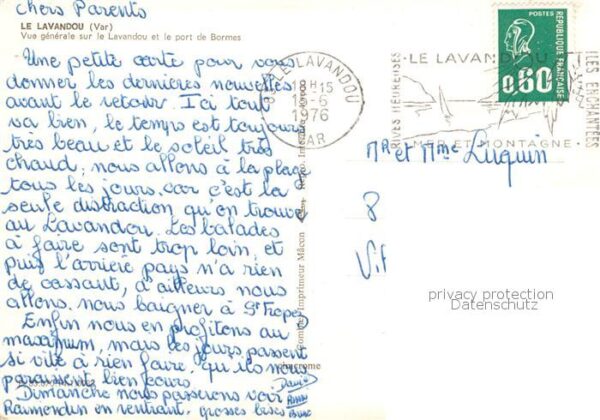 Chers Parents
LE LAVANDOU (Var)
Vue générale sur le Lavandou et le port de Bormes
Une petite carte pour vous
donner les dernières nouvelles
avant le retour. Ici tout
va bien, le temps est toujours
très beau et le soleil très
chaud, nous allons à la plage
tous les jours car c'est la
seule distraction qu'on trouve
au Lavandou. Les balades
à faire sont trop loin, et
puis l'arrière pays n'a rien
de cassant, d'ailleurs nous
allons nous baigner à St Tropez
Enfin nous en profitons au
maximum, mais les jours passent
si vite à rien faire, qu'ils nous
paraissent bien courts
Dimanche nous passerons voir
Raimondin en rentrant, grosses bises
LE LAVANDOU
18H15
-6
1976
VAR
RIVES HEUREUSES
-LE LAVANDOU
ILES ENCHANTEES
MER ET MONTAGNE-
POSTES
REPUBLIQUE FRANÇAISE
0,60
Combier Imprimeur Mâcon
MR et Mme Luquin
8
Vif
privacy protection
Datenschutz